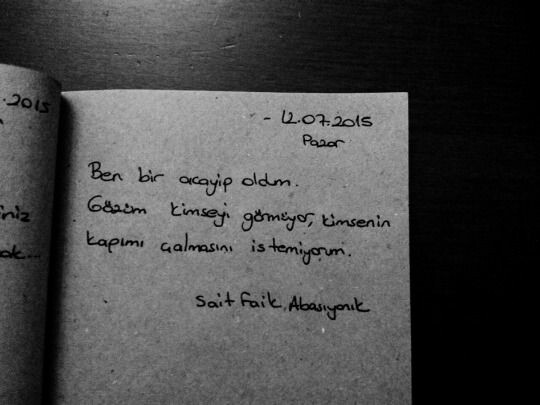 .2015
iniz
ak...
- 12.07.2015
Pazar
Ben bir acayip oldum.
Gözüm kimseyi görmüyor, kimsenin
kapımı çalmasını istemiyorum.
Sait Faik Abasıyanık